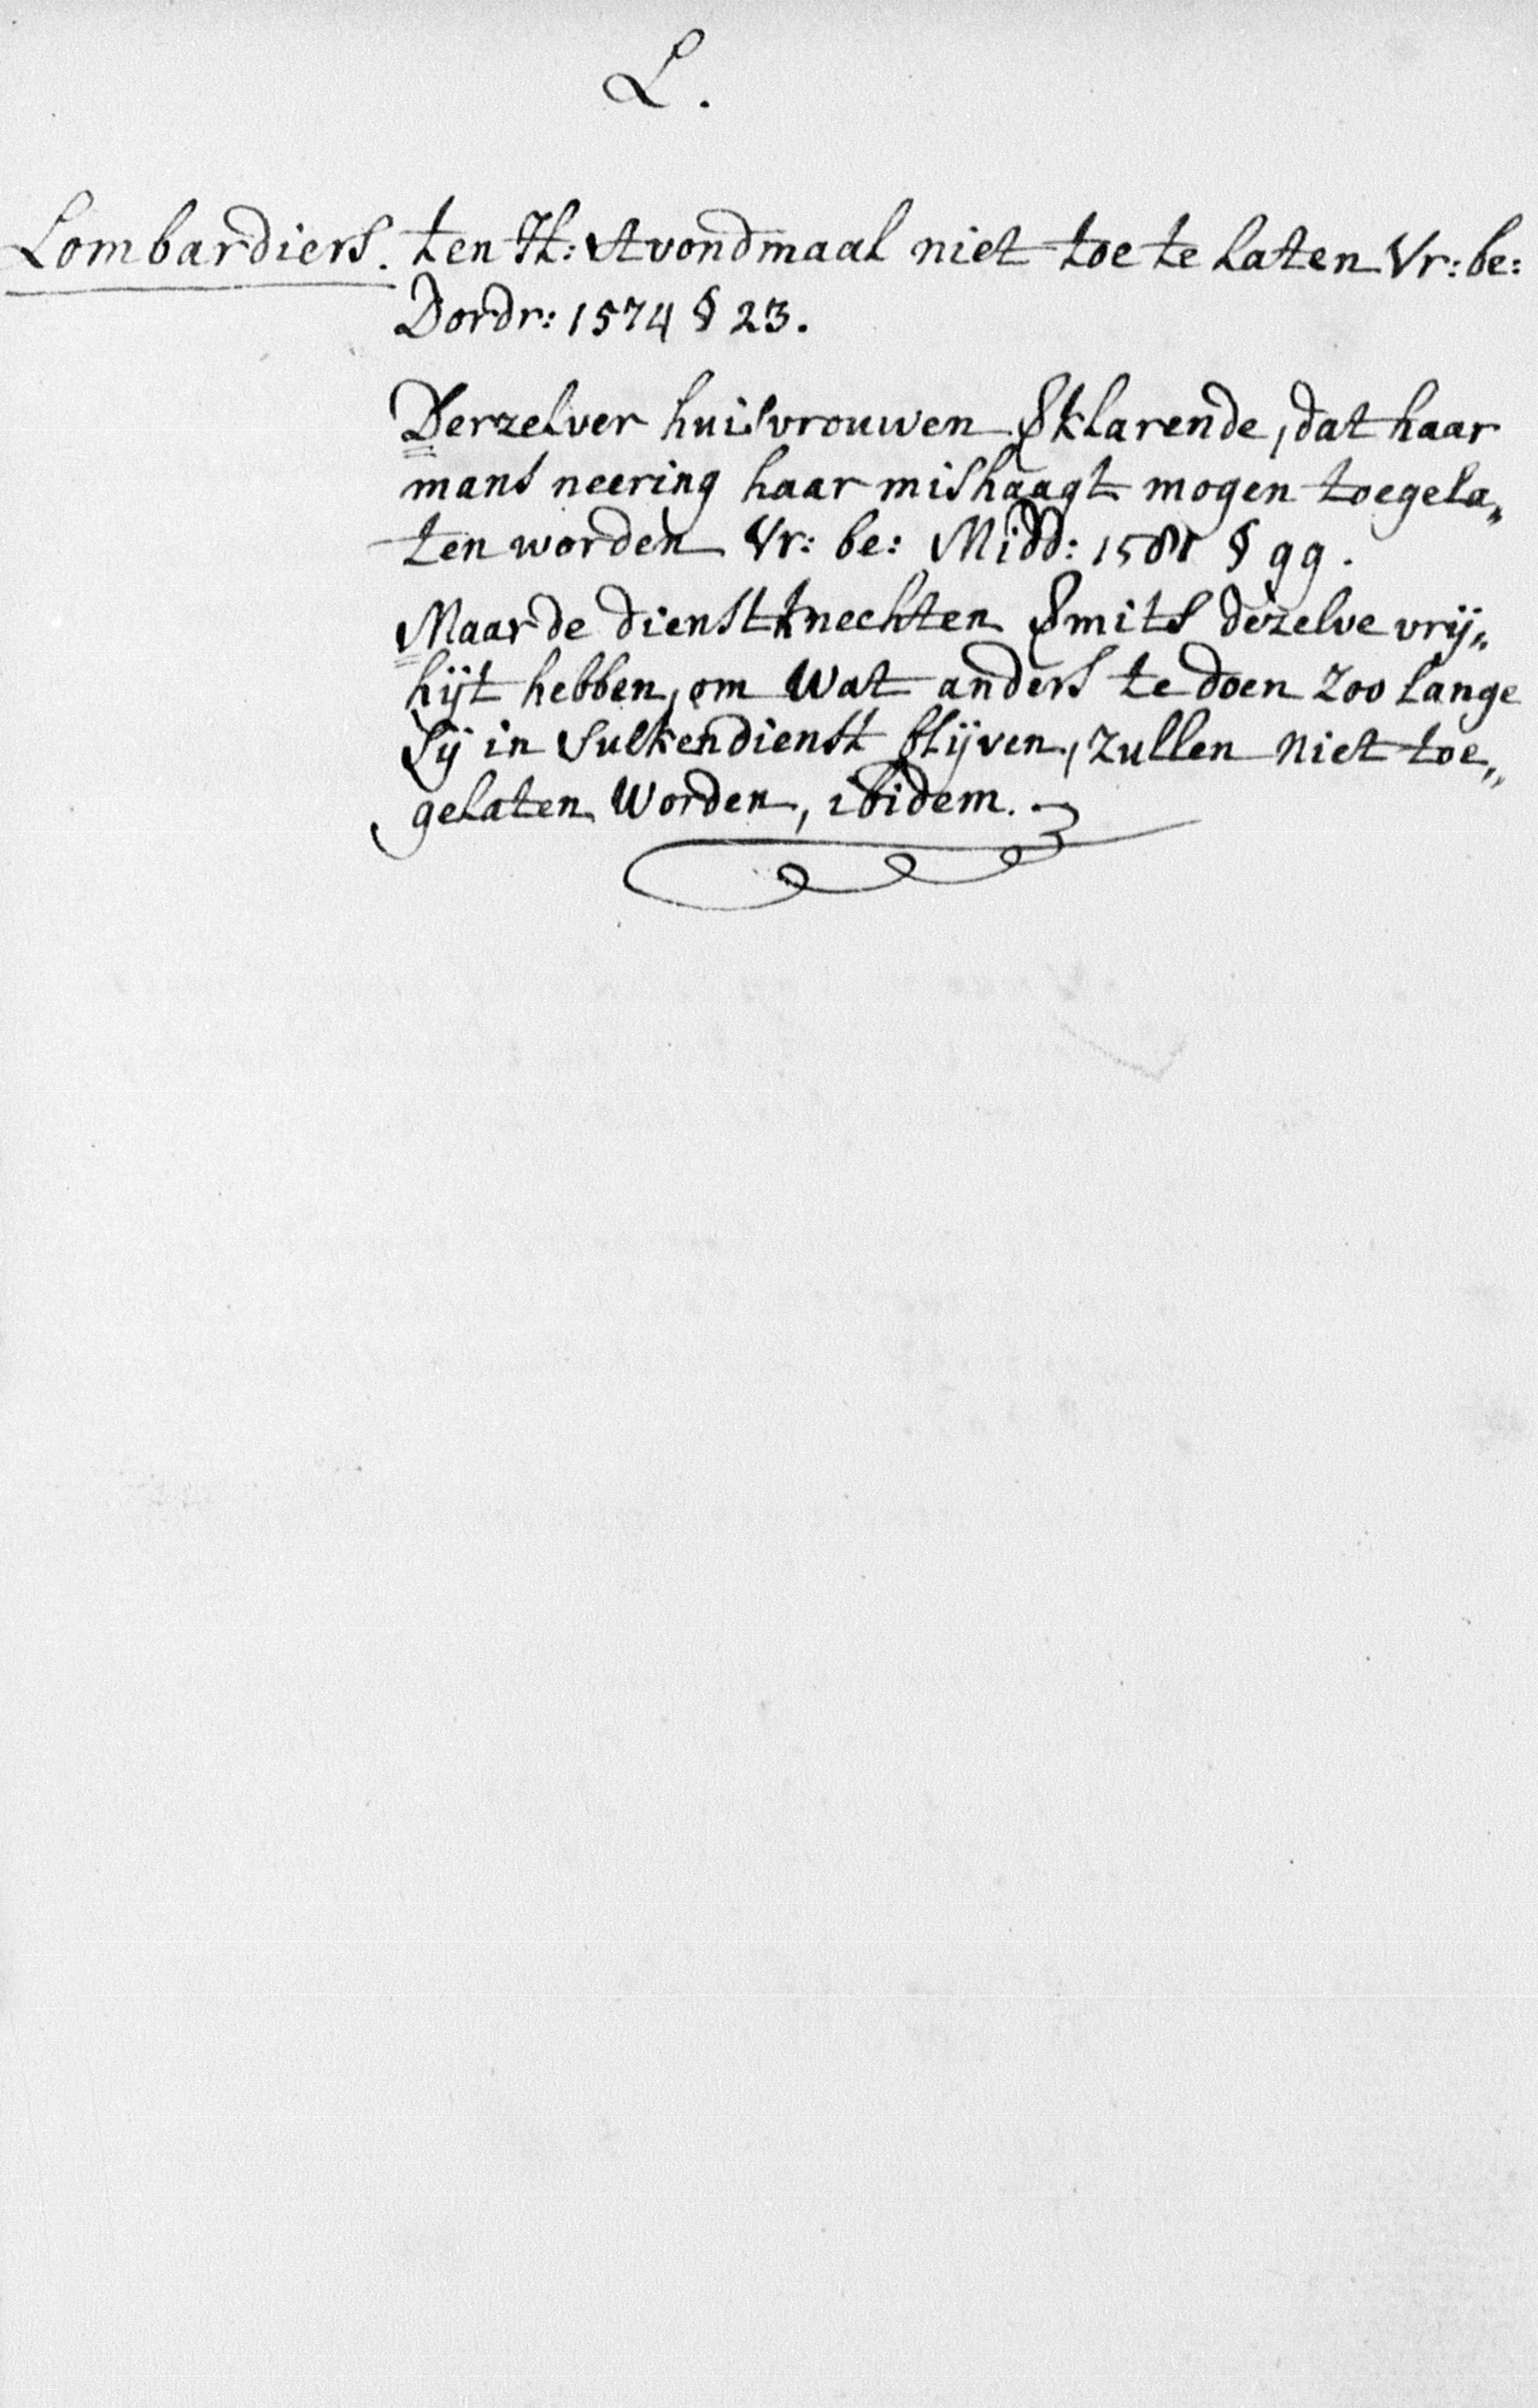 L.
Lombardiers. ten H: Avondmaal niet toe te laten Vr: be:
Dordr: 1574 § 23.
Derzelver huisvrouwen §klarende, dat haar
mans neering haar mishaagt mogen toegela„
ten worden Vr: be: Midd: 1581 § 99.
Maar de dienstknechten §mits dezelve vrij„
hijt hebben, om wat anders te doen zoo lange
sij in sulken dienst blijven, zullen niet toe„
gelaten worden, ibidem.